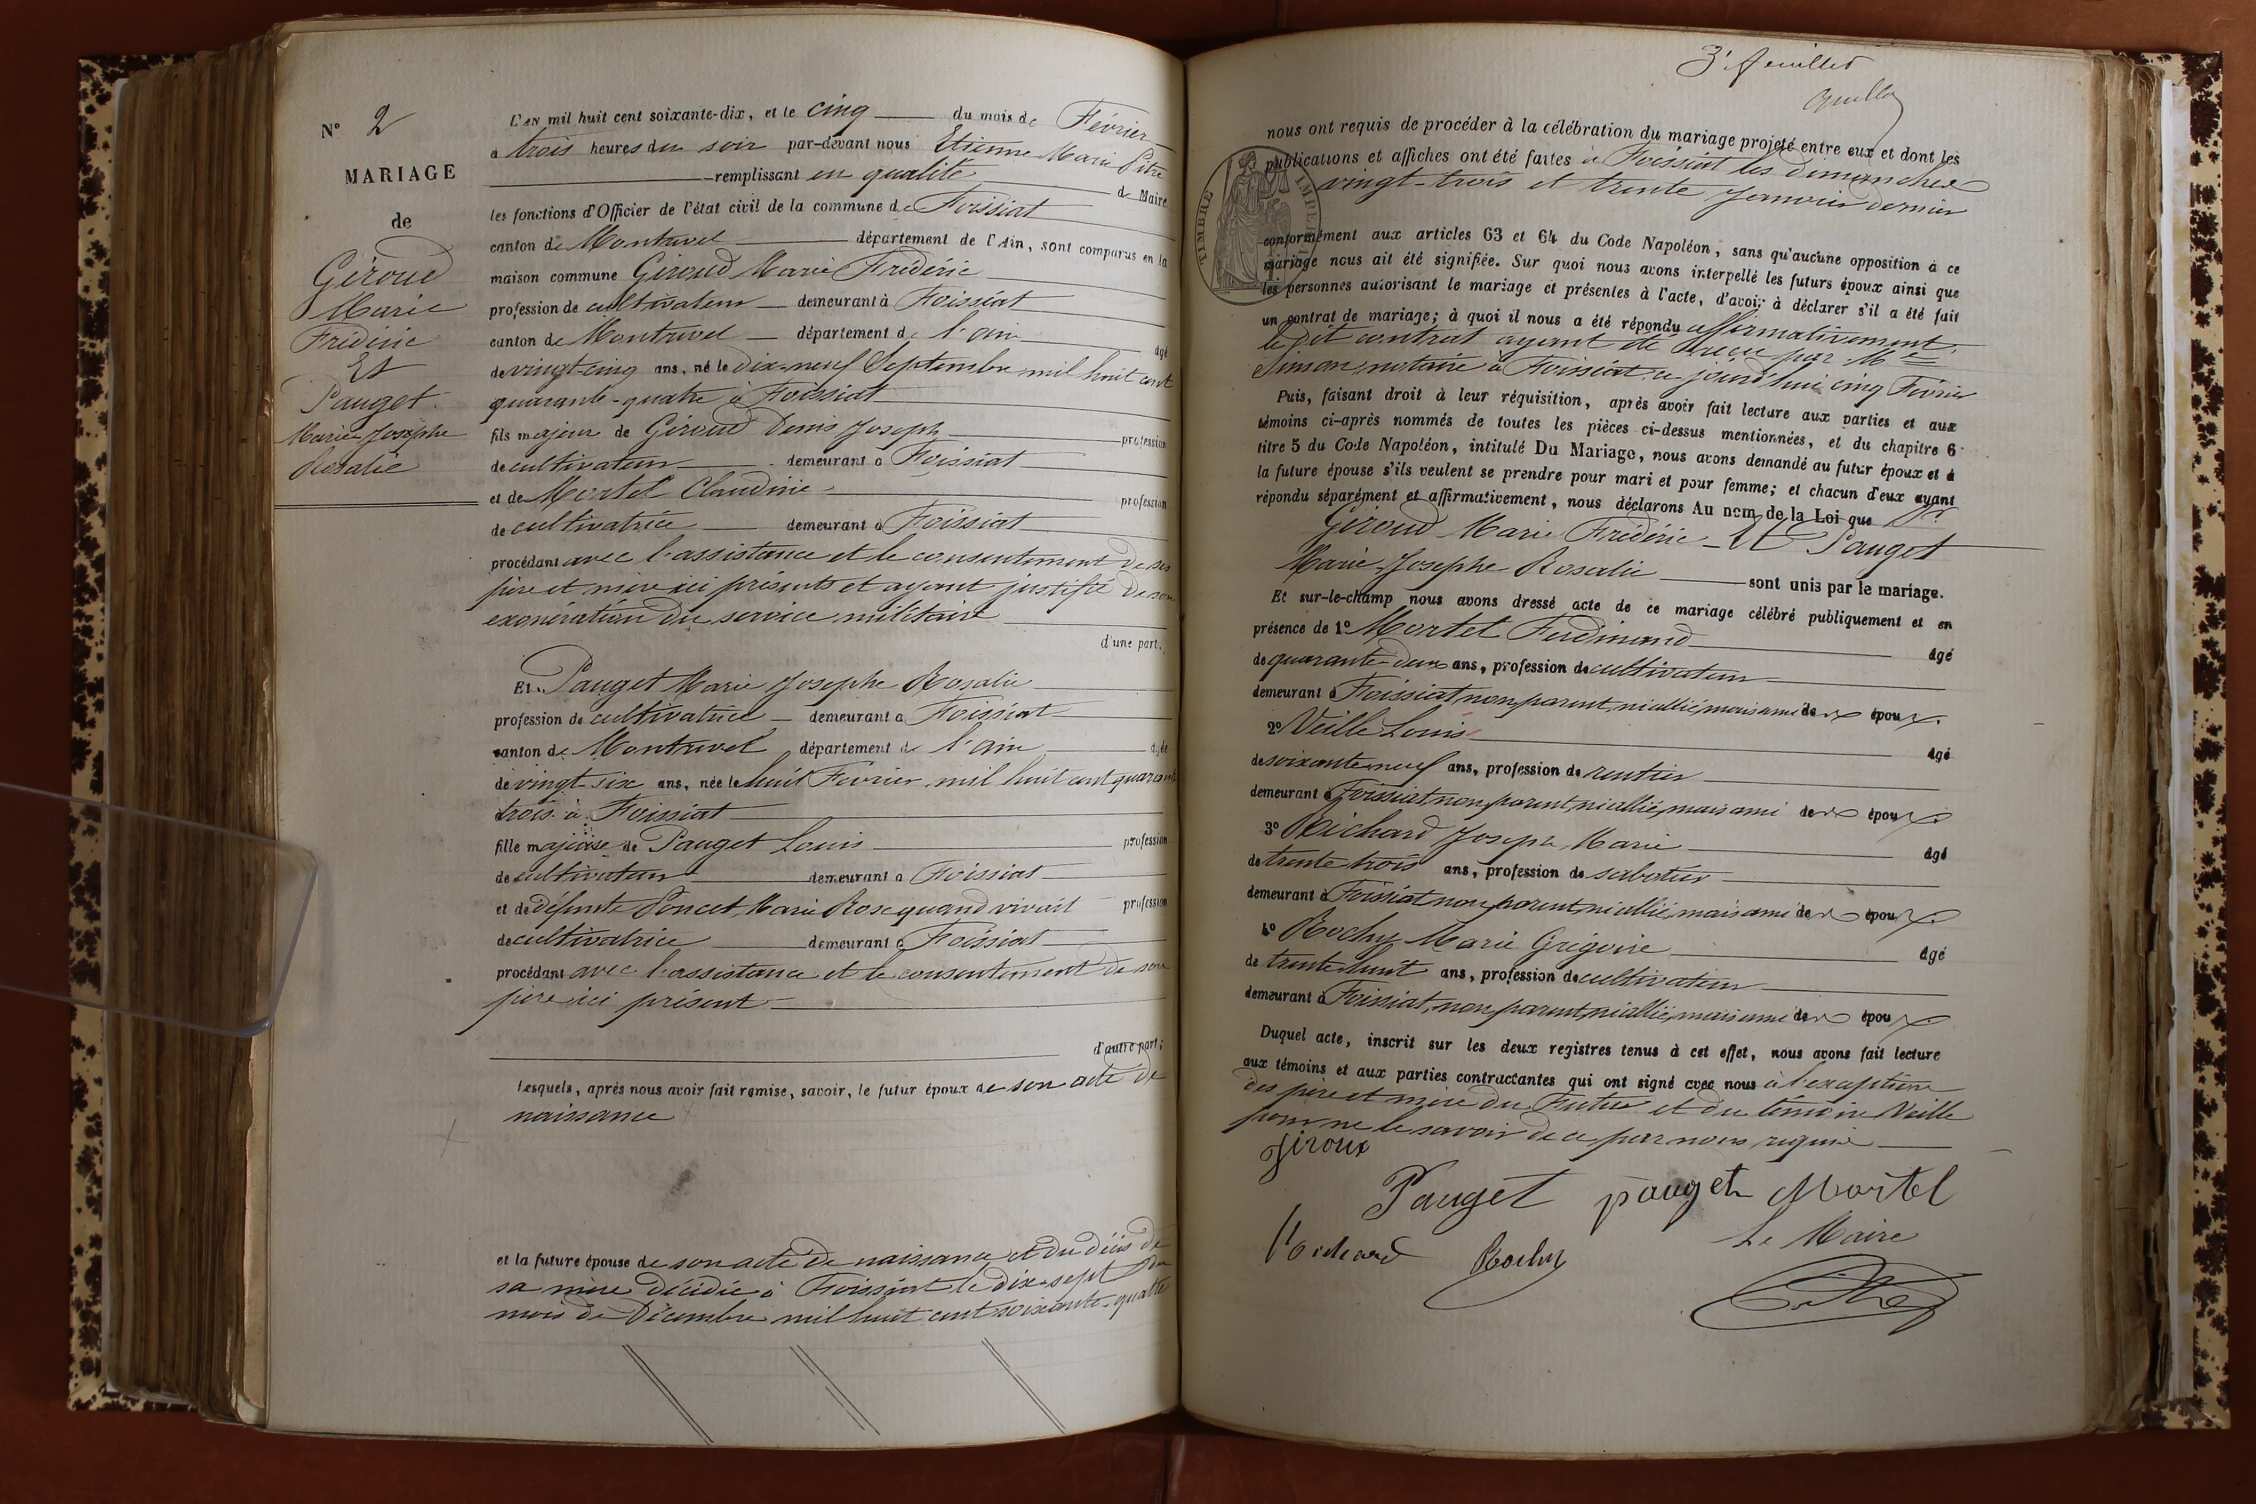 N° 2
MARIAGE
de
Géroud
Marie
Frédéric
Et
Pauget
Marie Josephe
Rosalie
L'AN mil huit cent soixante-dix, et le cinq du mois de Février
à trois heures du soir par-devant nous Etienne Marie Pitre
remplissant en qualité de Maire
les fonctions d'Officier de l'état civil de la commune de Foissiat
canton de Montrevel département de l'Ain, sont comparus en la
maison commune Géroud Marie Frédéric
profession de cultivateur demeurant à Foissiat
canton de Montrevel département de l'ain âgé
de vingt-cinq ans, né le dix-neuf Septembre mil huit cent
quarante-quatre à Foissiat
fils majeur de Géroud Denis Joseph profession
de cultivateur demeurant à Foissiat
et de Mortel Claudine profession
de cultivatrice demeurant à Foissiat
procédant avec l'assistance et le consentement de ses
père et mère ici présents et ayant justifié de son
exonération du service militaire
d'une part,
Et Pauget Marie Josephe Rosalie
profession de cultivatrice demeurant à Foissiat
canton de Montrevel département de l'ain âgée
de vingt-six ans, née le huit Février mil huit cent quarante
trois à Foissiat
fille majeure de Pauget Louis profession
de cultivateur demeurant à Foissiat
et de défunte Poncet Marie Rose quand vivait profession
de cultivatrice demeurant à Foissiat
procédant avec l'assistance et le consentement de son
père ici présent
d'autre part;
Lesquels, après nous avoir fait remise, savoir, le futur époux de son acte de
naissance
et la future épouse de son acte de naissance et du décès de
sa mère décédée à Foissiat le dix-sept du
mois de Décembre mil huit cent soixante-quatre
3e feuillet
nous ont requis de procéder à la célébration du mariage projeté entre eux et dont les
publications et affiches ont été faites à Foissiat les dimanches
vingt-trois et trente Janvier dernier
TIMBRE IMPÉRIAL
conformément aux articles 63 et 64 du Code Napoléon, sans qu'aucune opposition à ce
mariage nous ait été signifiée. Sur quoi nous avons interpellé les futurs époux ainsi que
les personnes autorisant le mariage et présentes à l'acte, d'avoir à déclarer s'il a été fait
un contrat de mariage; à quoi il nous a été répondu affirmativement,
le dit contrat ayant été reçu par Me
Simon, notaire à Foissiat ce jourd'hui cinq Février
Puis, faisant droit à leur réquisition, après avoir fait lecture aux parties et aux
témoins ci-après nommés de toutes les pièces ci-dessus mentionnées, et du chapitre 6
titre 5 du Code Napoléon, intitulé Du Mariage, nous avons demandé au futur époux et à
la future épouse s'ils veulent se prendre pour mari et pour femme; et chacun d'eux ayant
répondu séparément et affirmativement, nous déclarons Au nom de la Loi que
Géroud Marie Frédéric Et Pauget
Marie Josephe Rosalie sont unis par le mariage.
Et sur-le-champ nous avons dressé acte de ce mariage célébré publiquement et en
présence de 1° Mortel Ferdinand âgé
de quarante-deux ans, profession de cultivateur
demeurant à Foissiat non parent, ni allié, mais ami des époux.
2° Veille Louis âgé
de soixante neuf ans, profession de rentier
demeurant à Foissiat, non parent, ni allié, mais ami des époux.
3° Richard Joseph Marie âgé
de trente trois ans, profession de sabotier
demeurant à Foissiat non parent, ni allié, mais ami des époux.
4° Rochy Marie Grégoire âgé
de trente huit ans, profession de cultivateur
demeurant à Foissiat, non parent, ni allié, mais ami des époux
Duquel acte, inscrit sur les deux registres tenus à cet effet, nous avons fait lecture
aux témoins et aux parties contractantes qui ont signé avec nous à l'exception
des père et mère du Futur et du témoin Veille
pour ne le savoir de ce par nous requis
Giroux
Pauget pauget Mortel
Richard Rochy Le Maire
Pitre